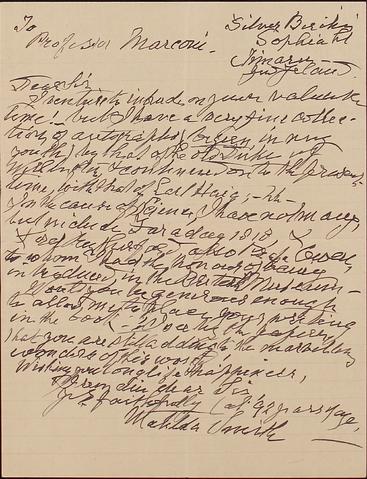 To
Professor Marconi.
Silver Birches
Sophia St
Timaru
Dear Sir
I venture to intrude on your valuable
time! but I have a very fine collec-
tion of autographs, begun in my
youth, by that of the old Duke of
Wellington & continued on to the present
time, with that of Earl Haig;
in the cause of Science I have not many,
but include Faraday 1818,
also Owen,
to whom I had the honour of being
introduced, in the British Museum -
Won't you be generous enough
to allow me to place your writing
in the book - I see by the papers
that you are still adding to the marvellous
wonders of this world!
Wishing you long life & happiness,
I remain dear Sir
Yrs faithfully (at 92 years of age,
Matilda Smith